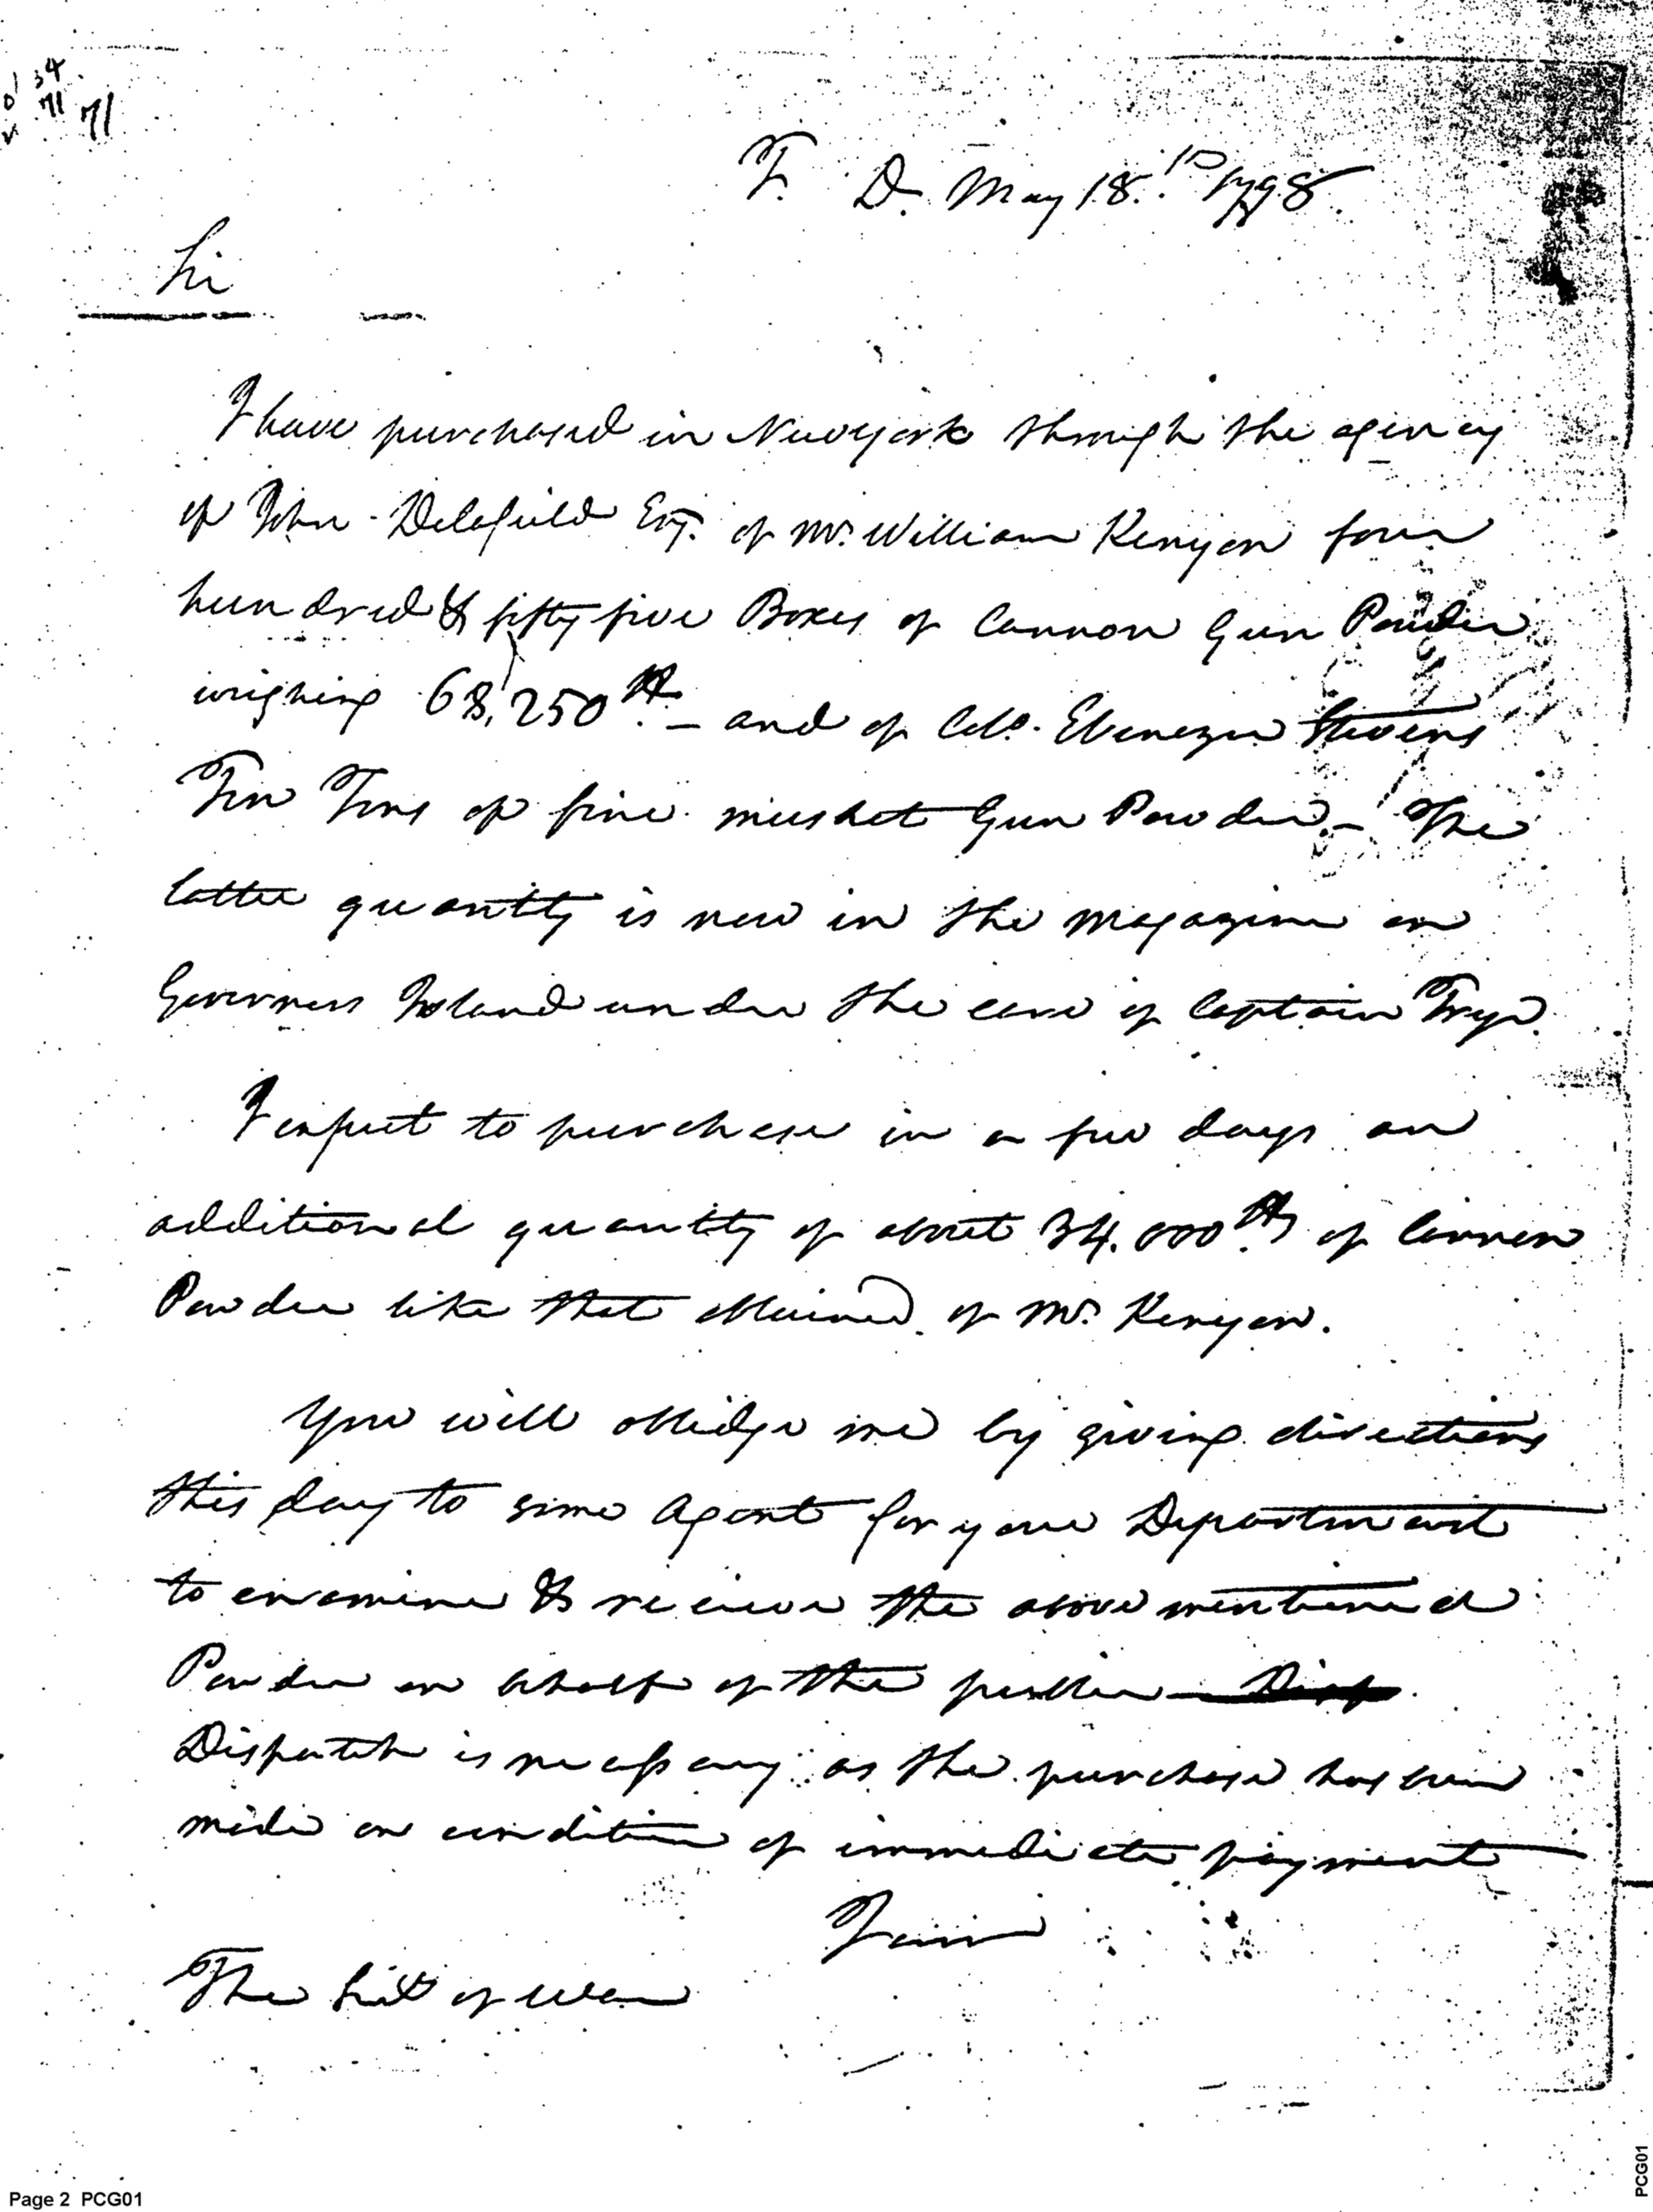 34
71 71
T. D. May 18th 1798
Sir
I have purchased in Newyork through the agency
of John Delafield Esq. of Mr. William Kenyon four
hundred & fifty five Boxes of Cannon Gun Powder
weighing 68,250 lb. — and of Colo. Ebenezer Stevens
Ten Tons of fine musket Gun Powder. — The
latter quantity is now in the magazine on
Governors Island under the care of Captain Frye.
I expect to purchase in a few days an
additional quantity of about 34.000 lbs of Cannon
Powder like that obtained of Mr. Kenyon.
You will oblidge me by giving directions
this day to some Agent for your Department
to examine & receive the above mentioned
Powder on behalf of the public — Disp
Dispatch is necessary as the purchase has been
made on condition of immediate payment
The Sect of War
Page 2 PCG01
PCG01